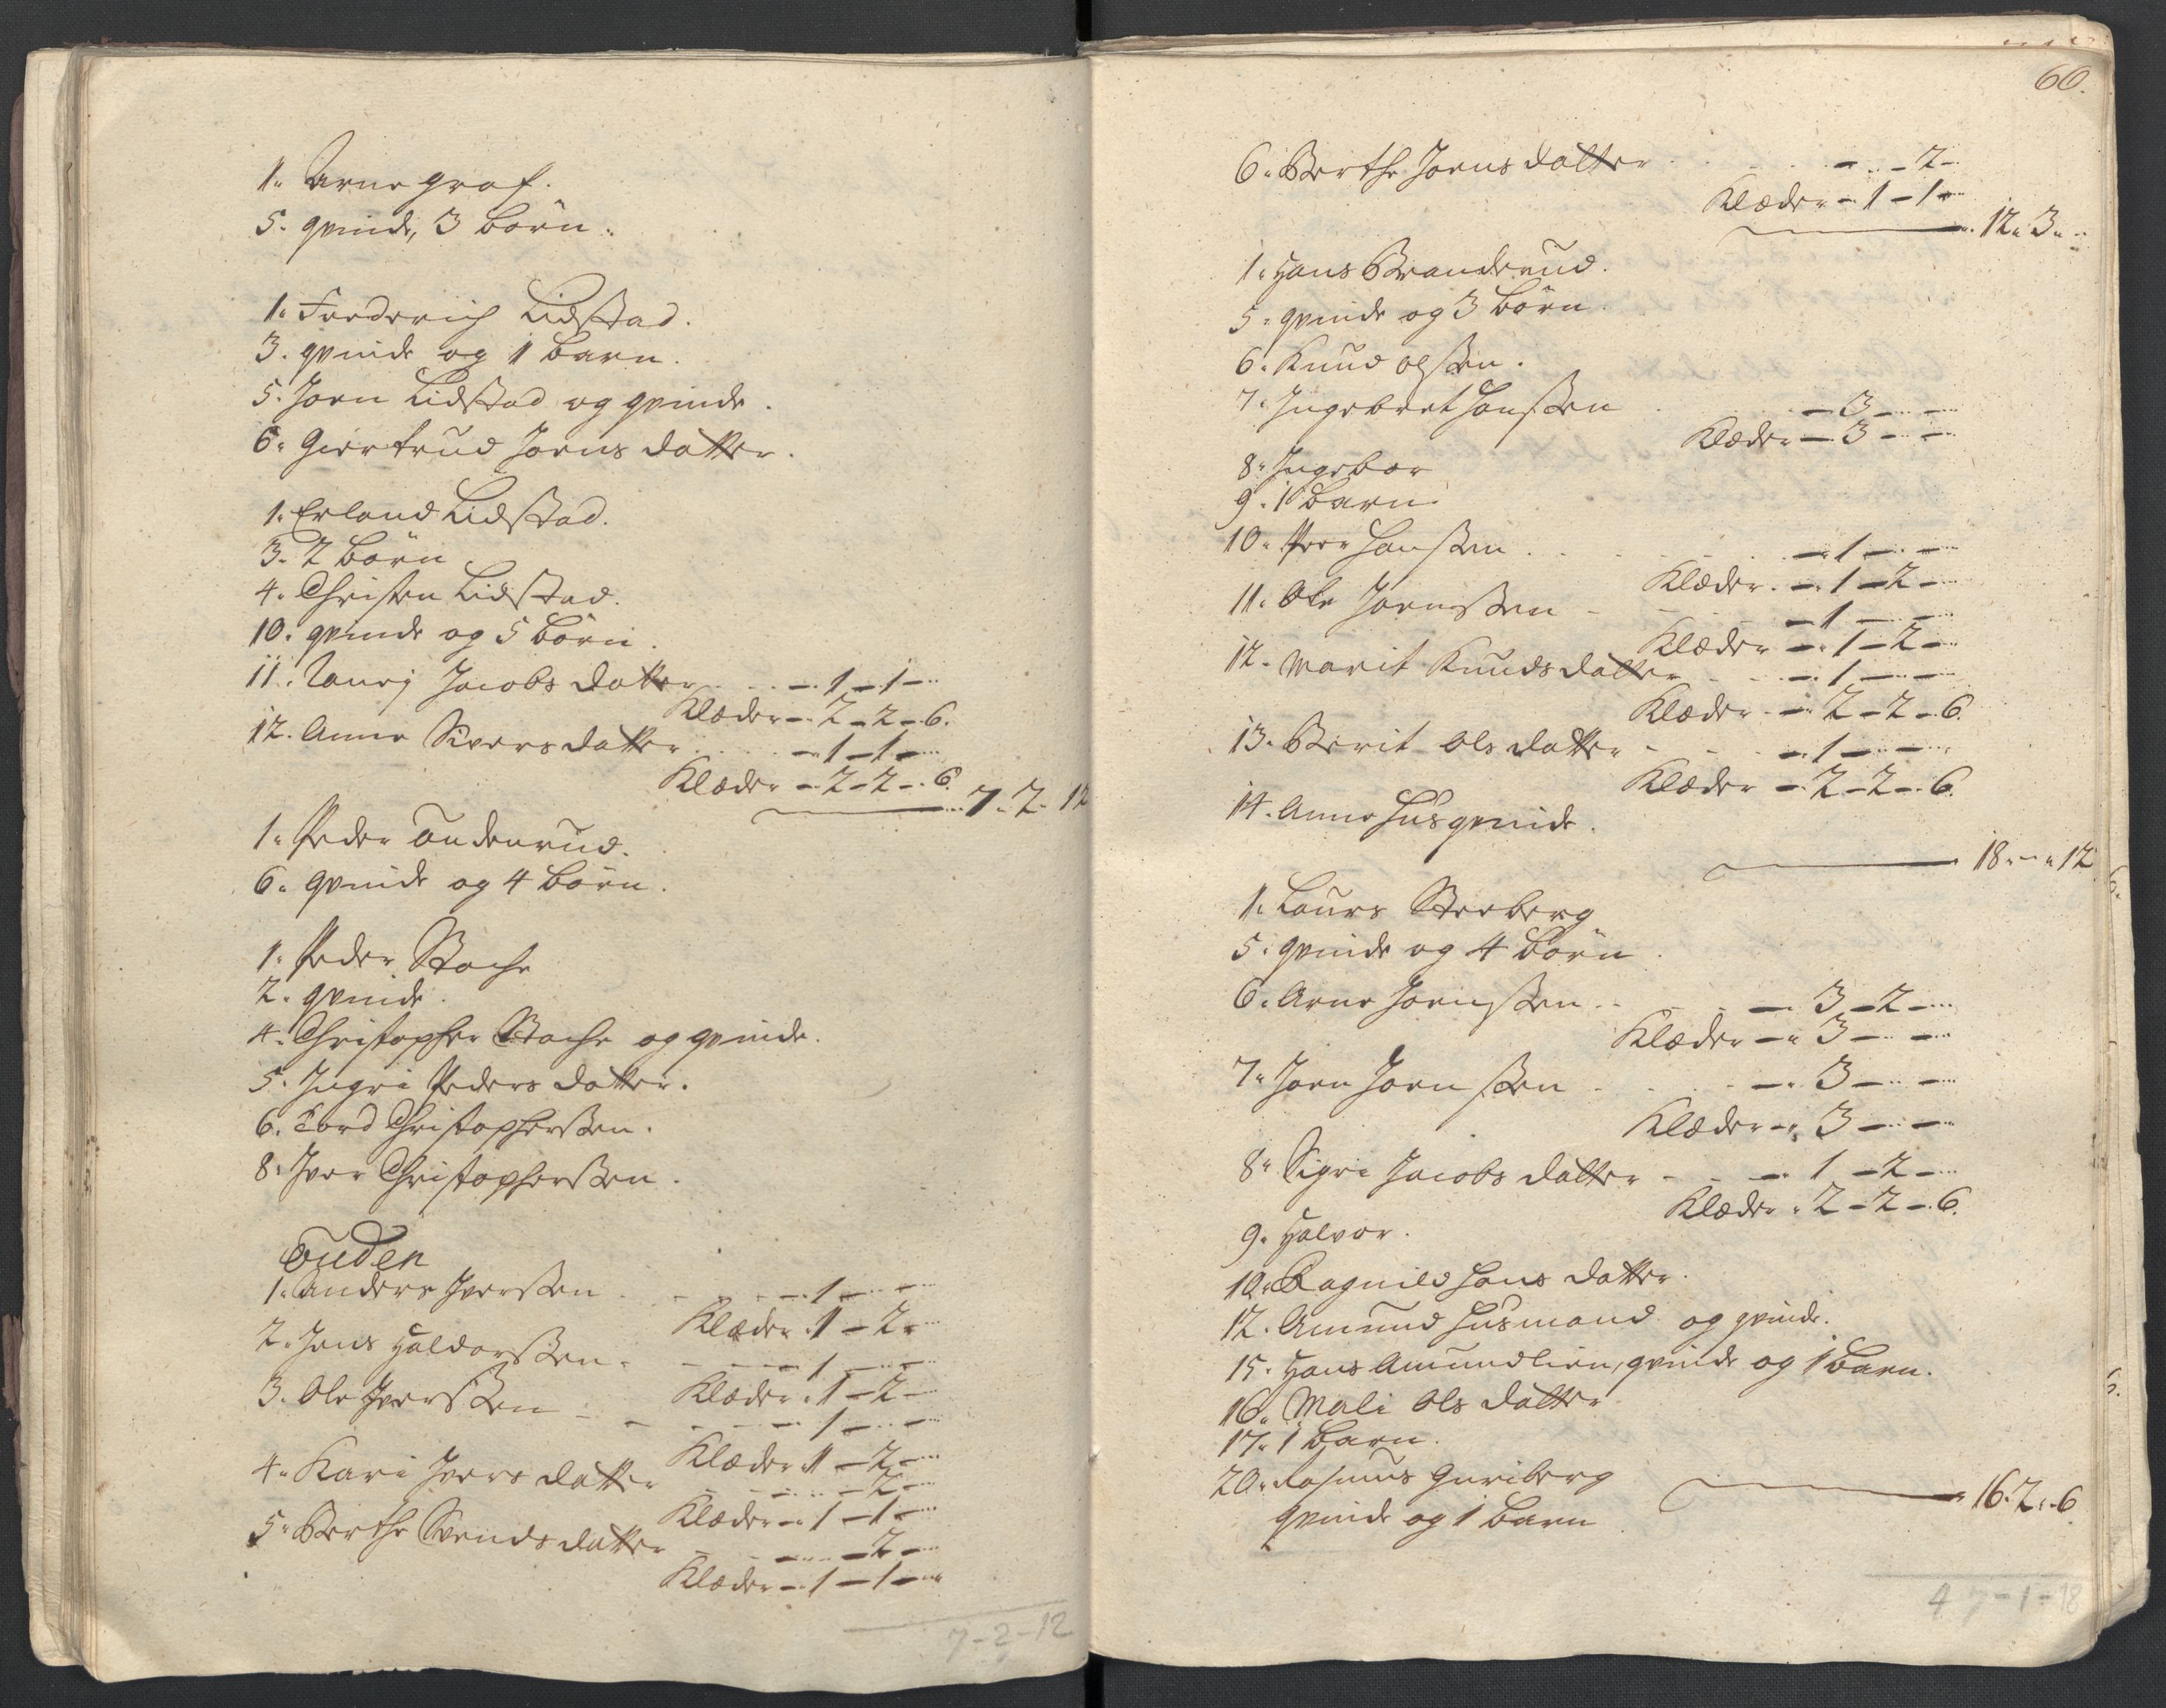 1. Arne graf.
5. qvinde, 3 börn.
1. Frederich Lidstad.
3. qvinde og 1 barn.
5. Joen Lidstad og qvinde.
6. Giertrud Joens datter.
1. Erland Lidstad.
3. 2 börn
4. Christen Lidstad.
10. qvinde og 5 börn.
11. Jacobs datter - 1 - 1 -
Klæder - 2 - 2 - 6.
12. Anne Sivers datter - 1 - 1 -
Klæder - 2 - 2 - 6.
7 - 2 - 12
1. Peder Oudenrud.
6. qvinde og 4 börn.
1. Peder Bache
2. qvinde.
4. Christopher Bache og qvinde.
5. Ingri Peders datter.
6. Tord Christophersen.
8. Iver Christophersen.
Ouden
1. Anders Iverssen - 1 -
Klæder 1 - 2 -
2. Jens Haldorssen - 1 -
Klæder 1 - 2 -
3. Ole Iverssen - 1 -
Klæder 1 - 2 -
4. Kari Ivers datter - 2 -
Klæder - 1 - 1 -
5. Berthe Svends datter - 2 -
Klæder - 1 - 1 -
7-2-12
60.
6. Berthe Joens datter - 2 -
Klæder - 1 - 1 -
12. 3.
1. Hans Branderud.
5. qvinde og 3 börn.
6. Knud olssen.
7. Ingebret Hanssen - 3 -
Klæder - 3 -
8. Ingebor
9. 1 barn
10. Peer Hanssen - 1 -
Klæder - 1 - 2 -
11. Ole Joenssen - 1 -
Klæder - 1 - 2 -
12. Marit Knuds datter - 1 -
Klæder - 2 - 2 - 6.
13. Berit Ols datter - 1 -
Klæder - 2 - 2 - 6.
14. Anne Husqvinde.
18 - " 12
1. Laurs Berberg
5. qvinde og 4 börn
6. Arne Joenssen - 3 - 2 -
Klæder - 3 -
7. Joen Joenssen - 3 -
Klæder - 3 -
8. Sigri Jacobs datter - 1 - 2 -
Klæder - 2 - 2 - 6.
9. Halvor.
10. Ragnild Hans datter.
12. Amund Husmand og qvinde.
15. Hans Amundlien, qvinde og 1 barn.
16. Mali Ols datter
17. 1 barn.
20. Rasmus Guriberg
qvinde og 1 barn
16. 2. 6
47-1-18